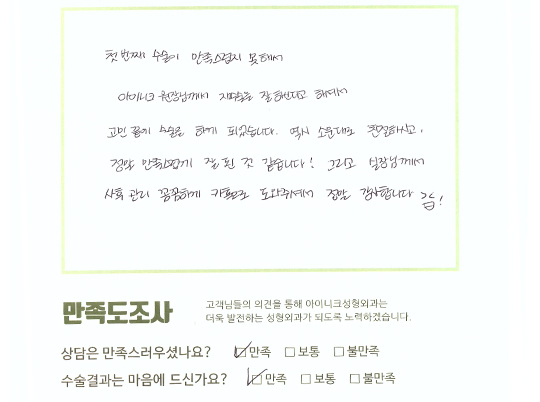 첫 번째 수술이 만족스럽지 못해서
아이니크 원장님께서 재수술을 잘 하신다고 해서
고민 끝에 수술을 하게 되었습니다. 역시 소문대로 친절하시고,
정말 만족스럽게 잘 된 것 같습니다! 그리고 실장님께서
사후 관리 꼼꼼하게 카톡으로 도와주셔서 정말 감사합니다
만족도조사
고객님들의 의견을 통해 아이니크성형외과는
더욱 발전하는 성형외과가 되도록 노력하겠습니다.
상담은 만족스러우셨나요? ☑만족 □보통 □불만족
수술결과는 마음에 드신가요? ☑만족 □보통 □불만족